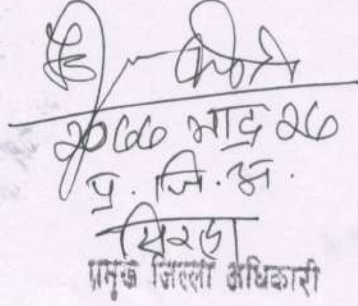 २०७७ भाद्र २७
प्र. जि. अ.
सिरहा
प्रमुख जिल्ला अधिकारी